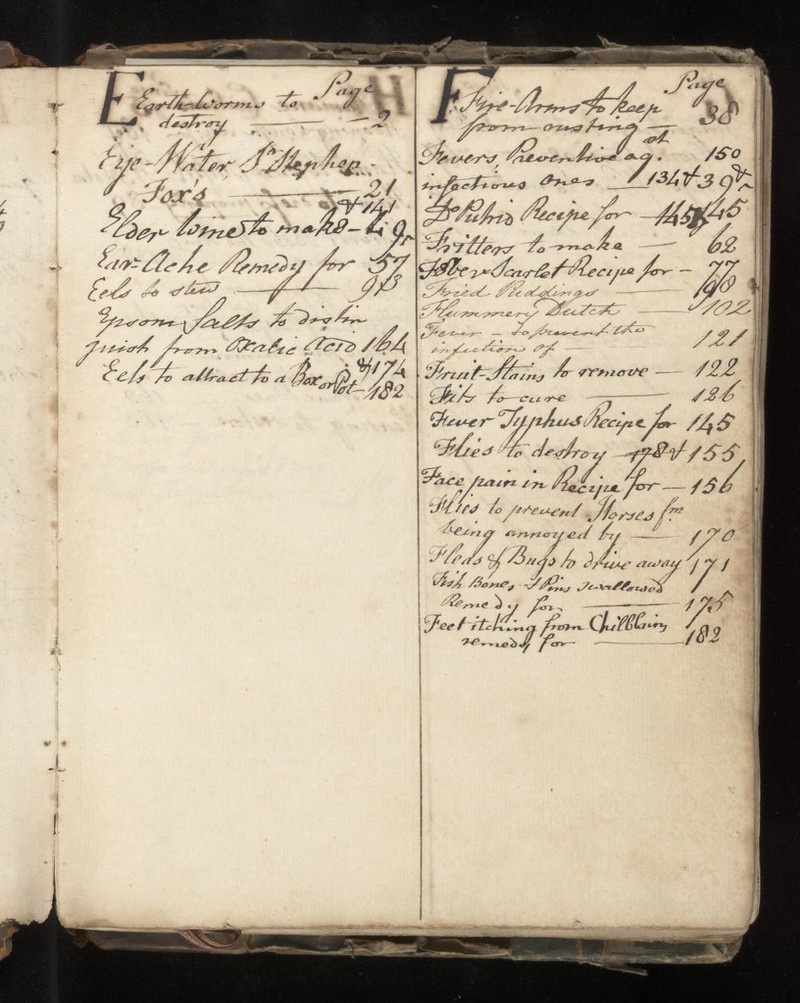 E
Page
Earth-worms to
destroy — 2
Eye-Water Sr Stephen
Fox's — 21
& 141
Elder Wine to make —
Ear-Ache Remedy for 57
Eels to stew — 93
Epsom Salts to distin
guish from Oxalic Acid 164
& 174
Eels to attract to a Box or Pot — 182
F
Page
Fire-Arms to keep
from rusting — 38
Fevers, Preventive ag.st 150
infectious ones — 134 & 39 &
Do Putrid Recipe for — 145
Fritters to make — 62
Fever Scarlet Recipe for — 77
Fried Puddings — 98
Flummery Dutch — 102
Fever — To prevent the
infection of — 121
Fruit-Stains to remove — 122
Fits to cure — 126
Fever Typhus Recipe for 145
Flies to destroy — 178 & 155
Face pain in Recipe for — 156
Flies to prevent Horses fm
being annoyed by — 170
Fleas & Bugs to drive away 171
Fish Bones & Pins swallowed
Remedy for — 175
Feet itching from Chilblains
remedy for — 182